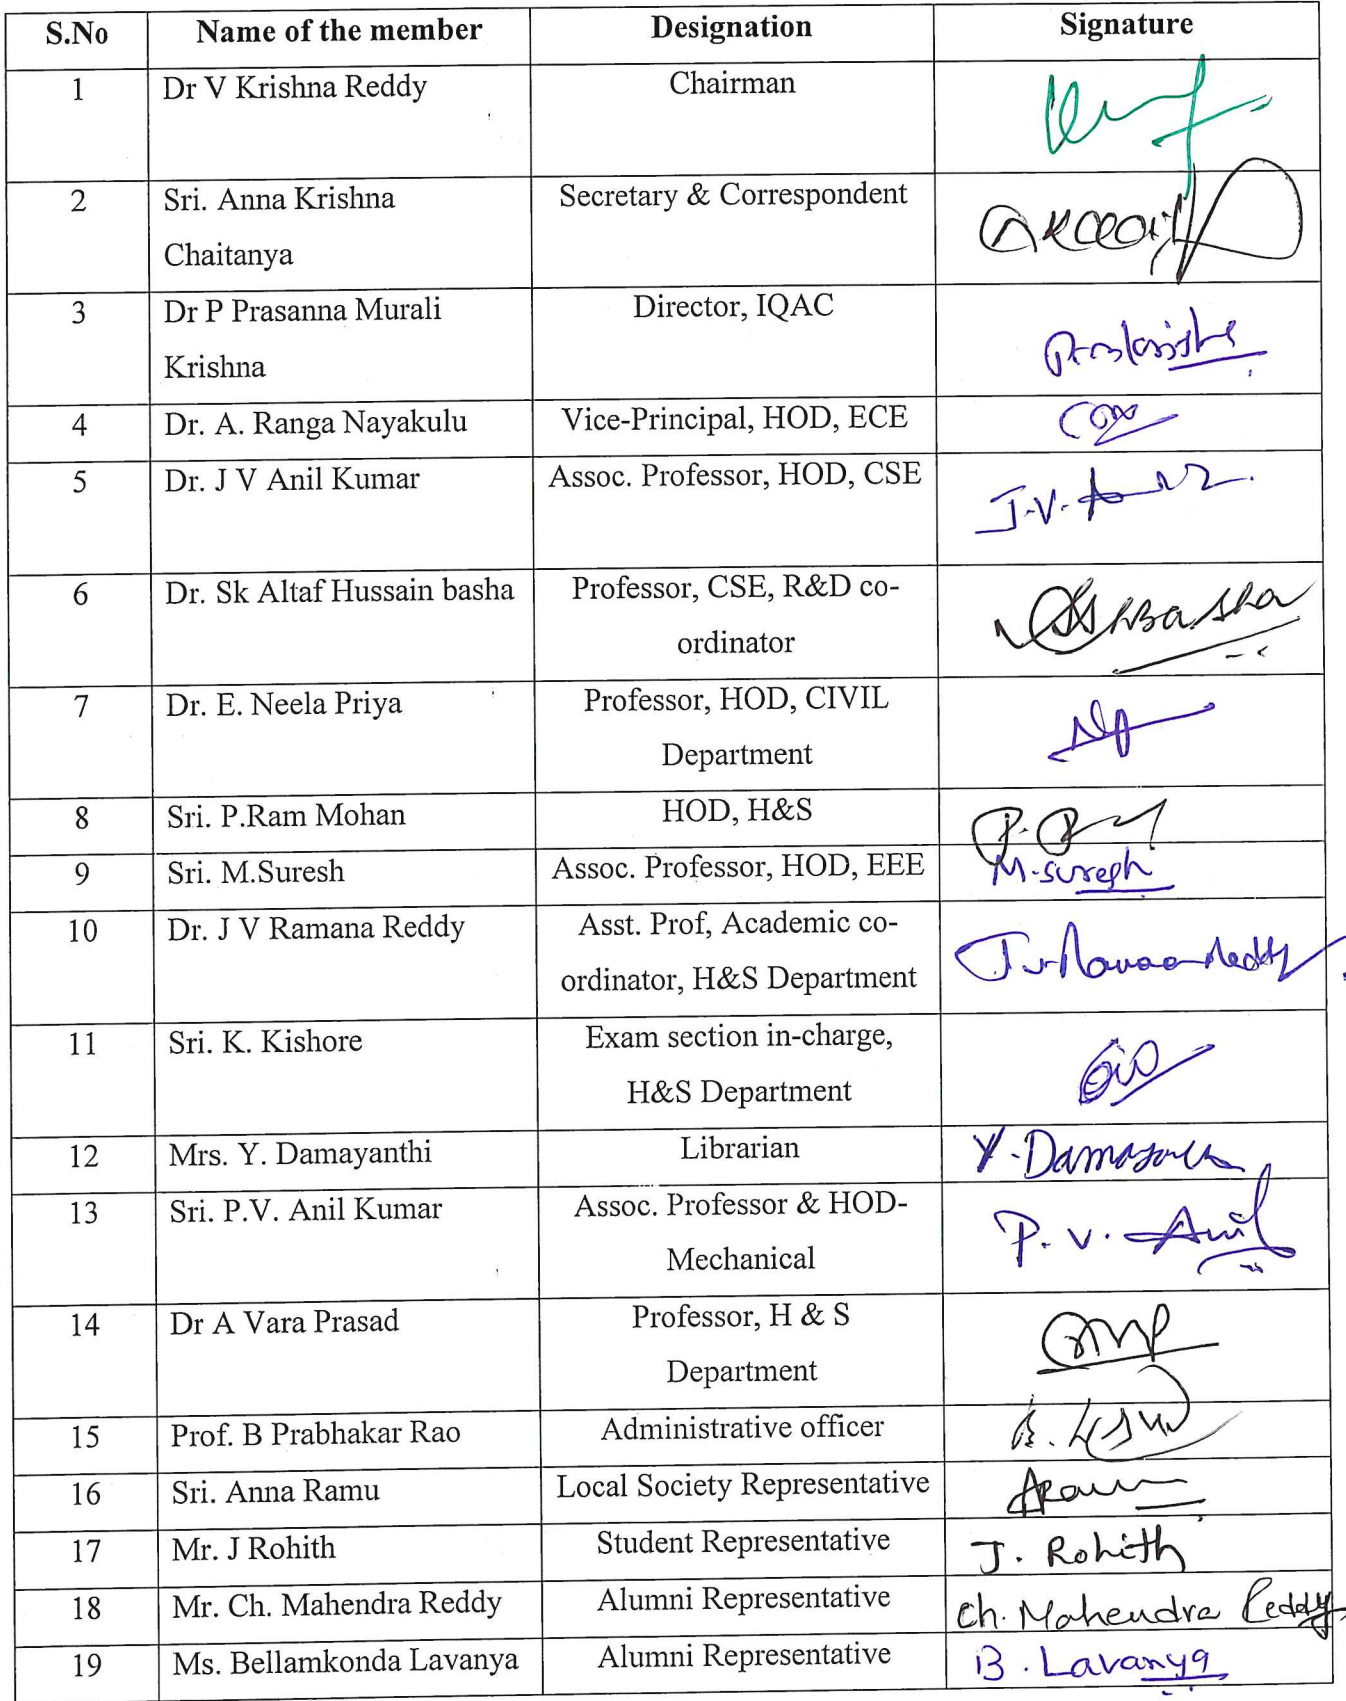 S.No Name of the member Designation Signature
1 Dr V Krishna Reddy Chairman
2 Sri. Anna Krishna Secretary & Correspondent
Chaitanya
3 Dr P Prasanna Murali Director, IQAC
Krishna
4 Dr. A. Ranga Nayakulu Vice-Principal, HOD, ECE
5 Dr. J V Anil Kumar Assoc. Professor, HOD, CSE J.V.
6 Dr. Sk Altaf Hussain basha Professor, CSE, R&D co-
ordinator
7 Dr. E. Neela Priya Professor, HOD, CIVIL
Department
8 Sri. P.Ram Mohan HOD, H&S
9 Sri. M.Suresh Assoc. Professor, HOD, EEE M.Suresh
10 Dr. J V Ramana Reddy Asst. Prof, Academic co-
ordinator, H&S Department
11 Sri. K. Kishore Exam section in-charge,
H&S Department
12 Mrs. Y. Damayanthi Librarian
13 Sri. P.V. Anil Kumar Assoc. Professor & HOD- P. V. Anil
Mechanical
14 Dr A Vara Prasad Professor, H & S
Department
15 Prof. B Prabhakar Rao Administrative officer
16 Sri. Anna Ramu Local Society Representative
17 Mr. J Rohith Student Representative J. Rohith
18 Mr. Ch. Mahendra Reddy Alumni Representative Ch. Mahendra Reddy
19 Ms. Bellamkonda Lavanya Alumni Representative B. Lavanya